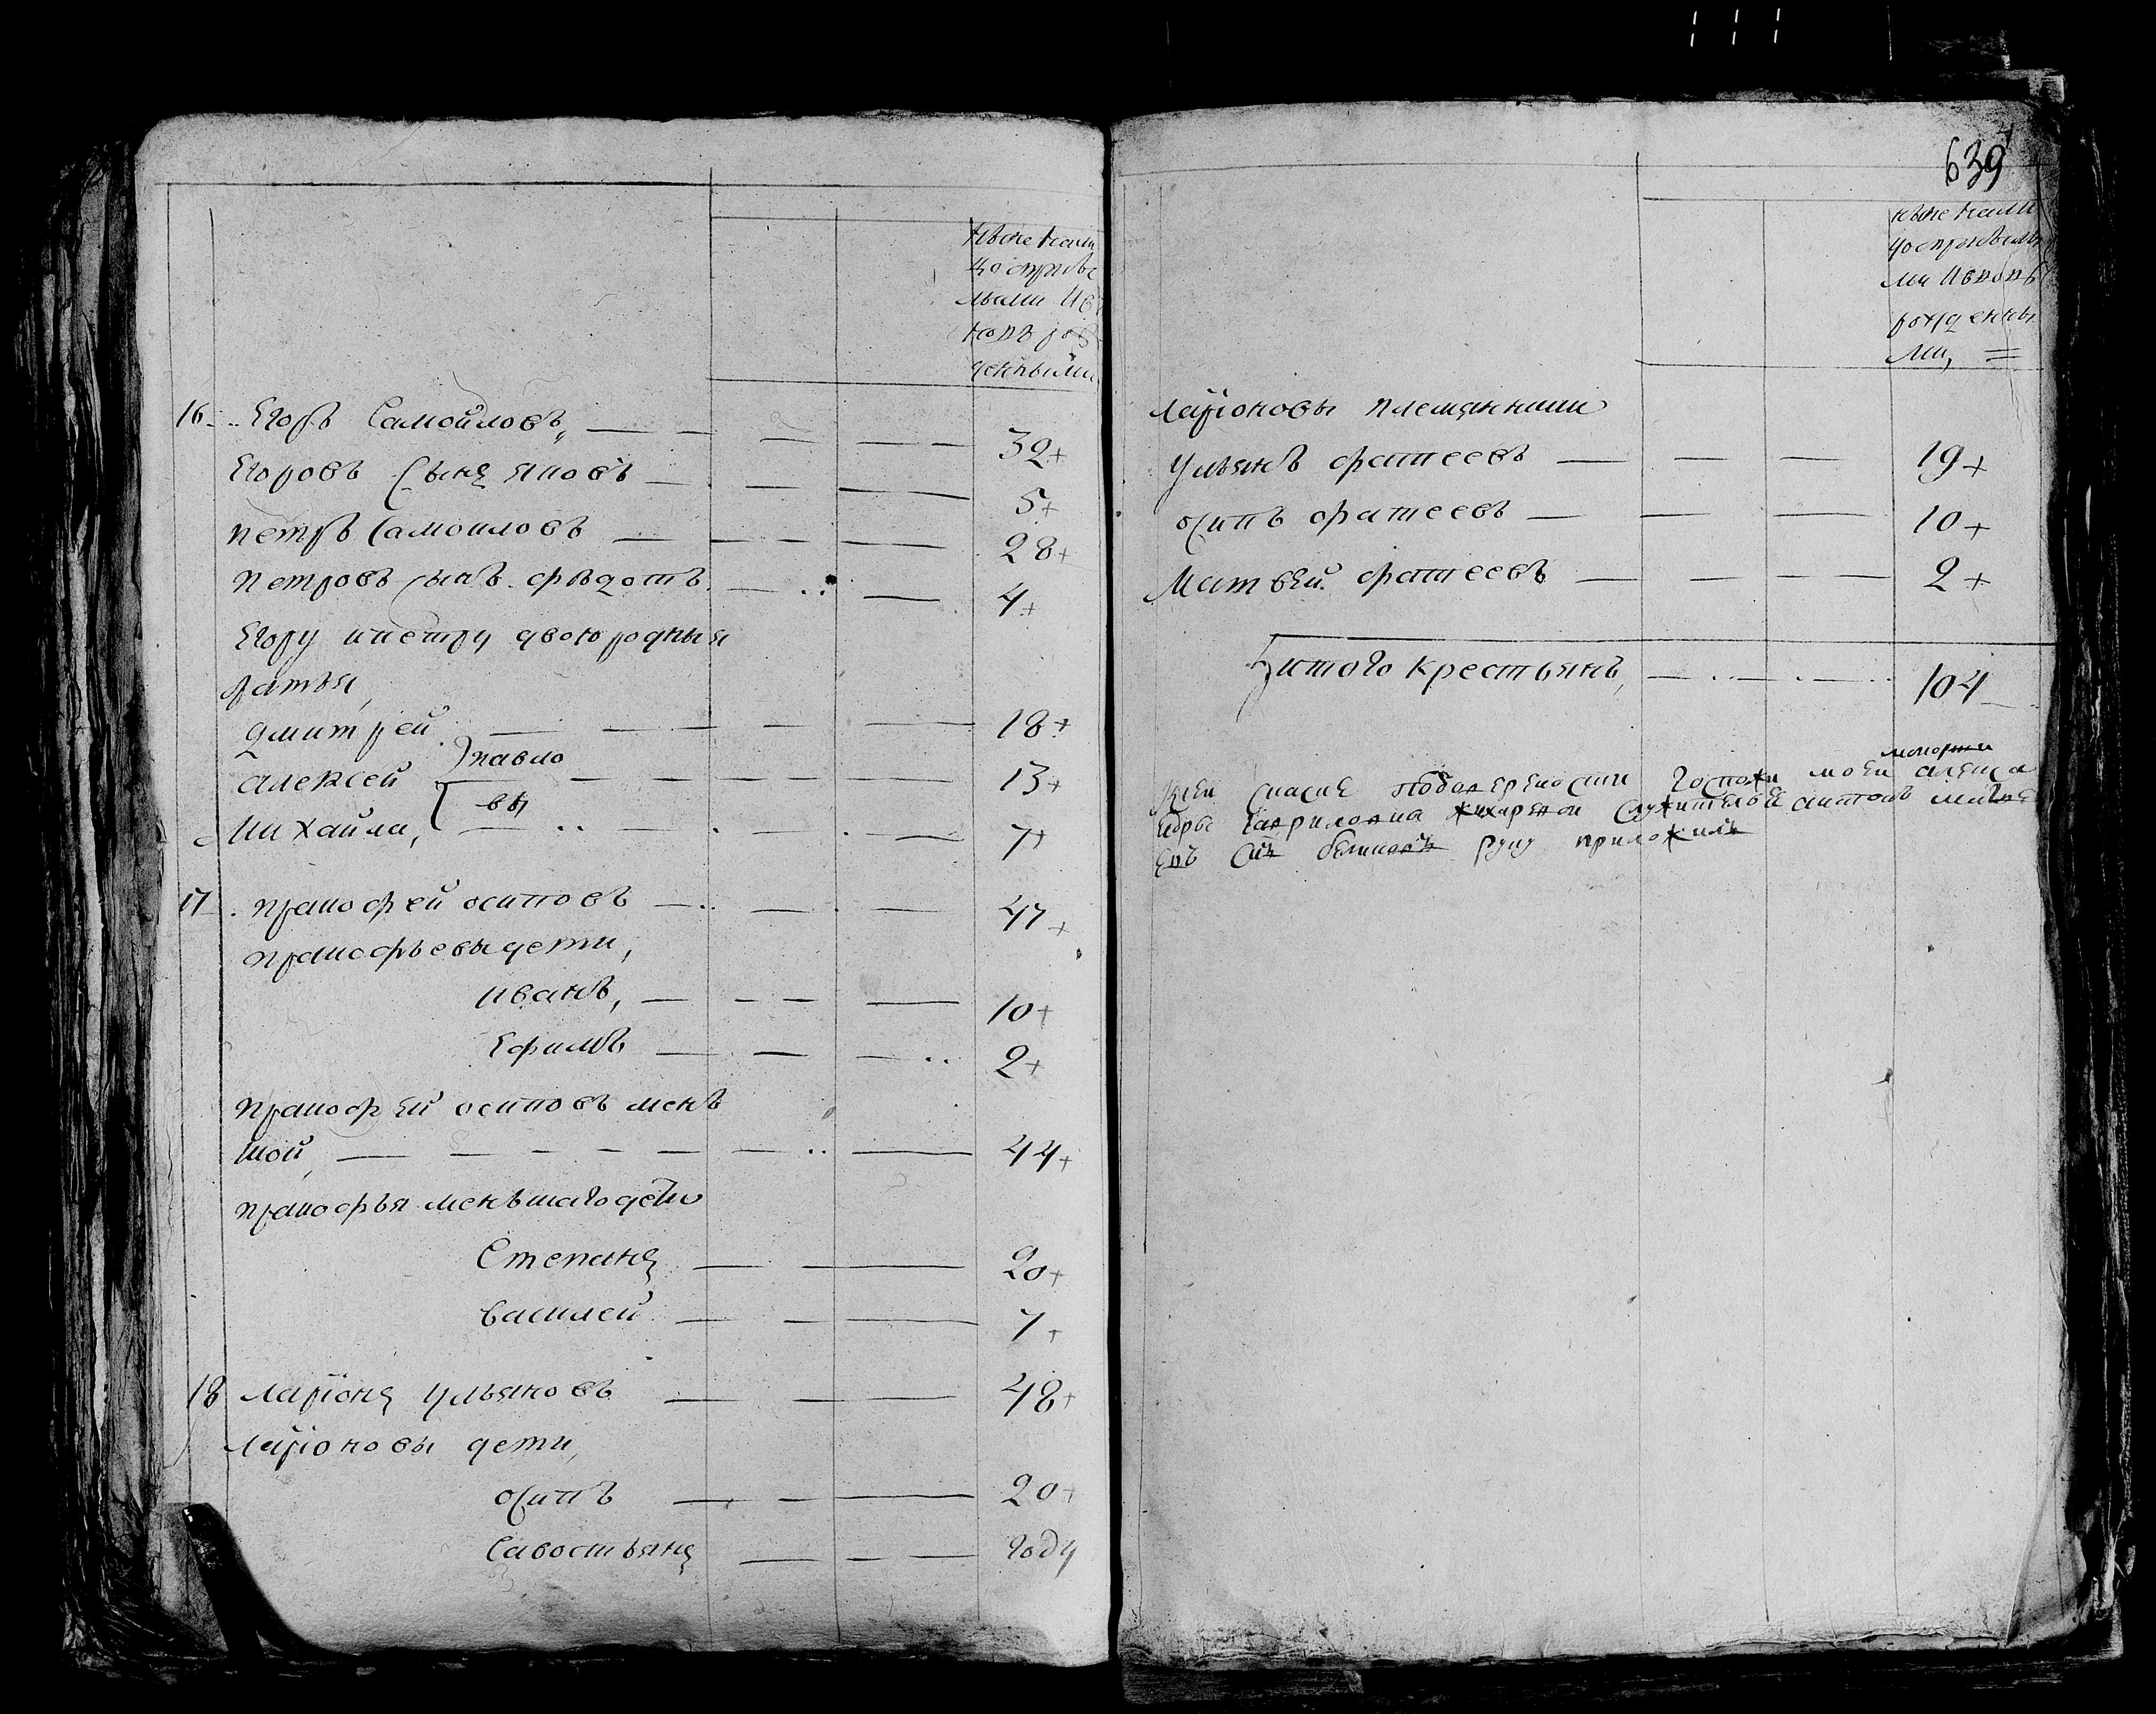 ныне на ли
цо с прибы
лыми и в
новь рож
денными
16 Егоръ Самойловъ 32+
Егоровъ сынъ Яковъ 5+
Петръ Самоиловъ 28+
Петровъ сынъ Фѣдотъ 4+
Егору и петру двоюродныя
братья
Дмитрей 18+
Алексей павло 13+
вы
Михайла, 7+
17 Пракофей осиповъ 47+
Пракофьевы дети,
иванъ, 10+
Ефимъ 2+
Пракофей осиповъ мень
шой, 44+
Пракофья меньшаго дети
Степанъ 20+
василей 7+
18 Ларiонъ Ульяновъ 48+
Ларiоновы дети,
осипъ 20+
Савостьянъ году
639
4
ныне на ли
цо с прибылы
ми и вновь
рожденны
ми,
Ларiоновы племянники
Ульянъ фатеевъ 19+
осипъ фатеевъ 10+
Матвей фатеевъ 2+
итого крестьянъ, 104
скаске по госпожи моеи
Гавриловна служитель антонъ
руку приложилъ